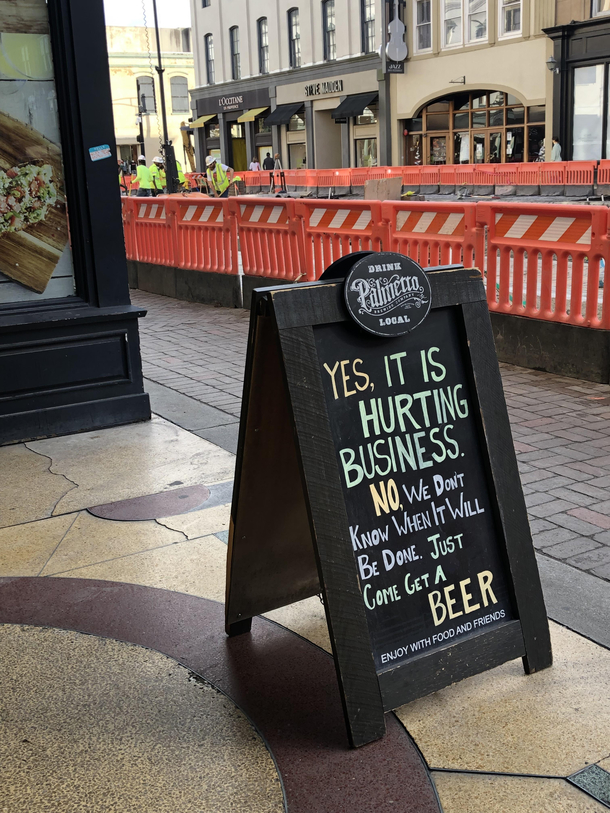 L'OCCITANE
STEVE MADDEN
JAZZ
DRINK
Palmetto
BREWING COMPANY
LOCAL
YES, IT IS
HURTING
BUSINESS.
NO, WE DON'T
KNOW WHEN IT WILL
BE DONE. JUST
COME GET A
BEER
ENJOY WITH FOOD AND FRIENDS